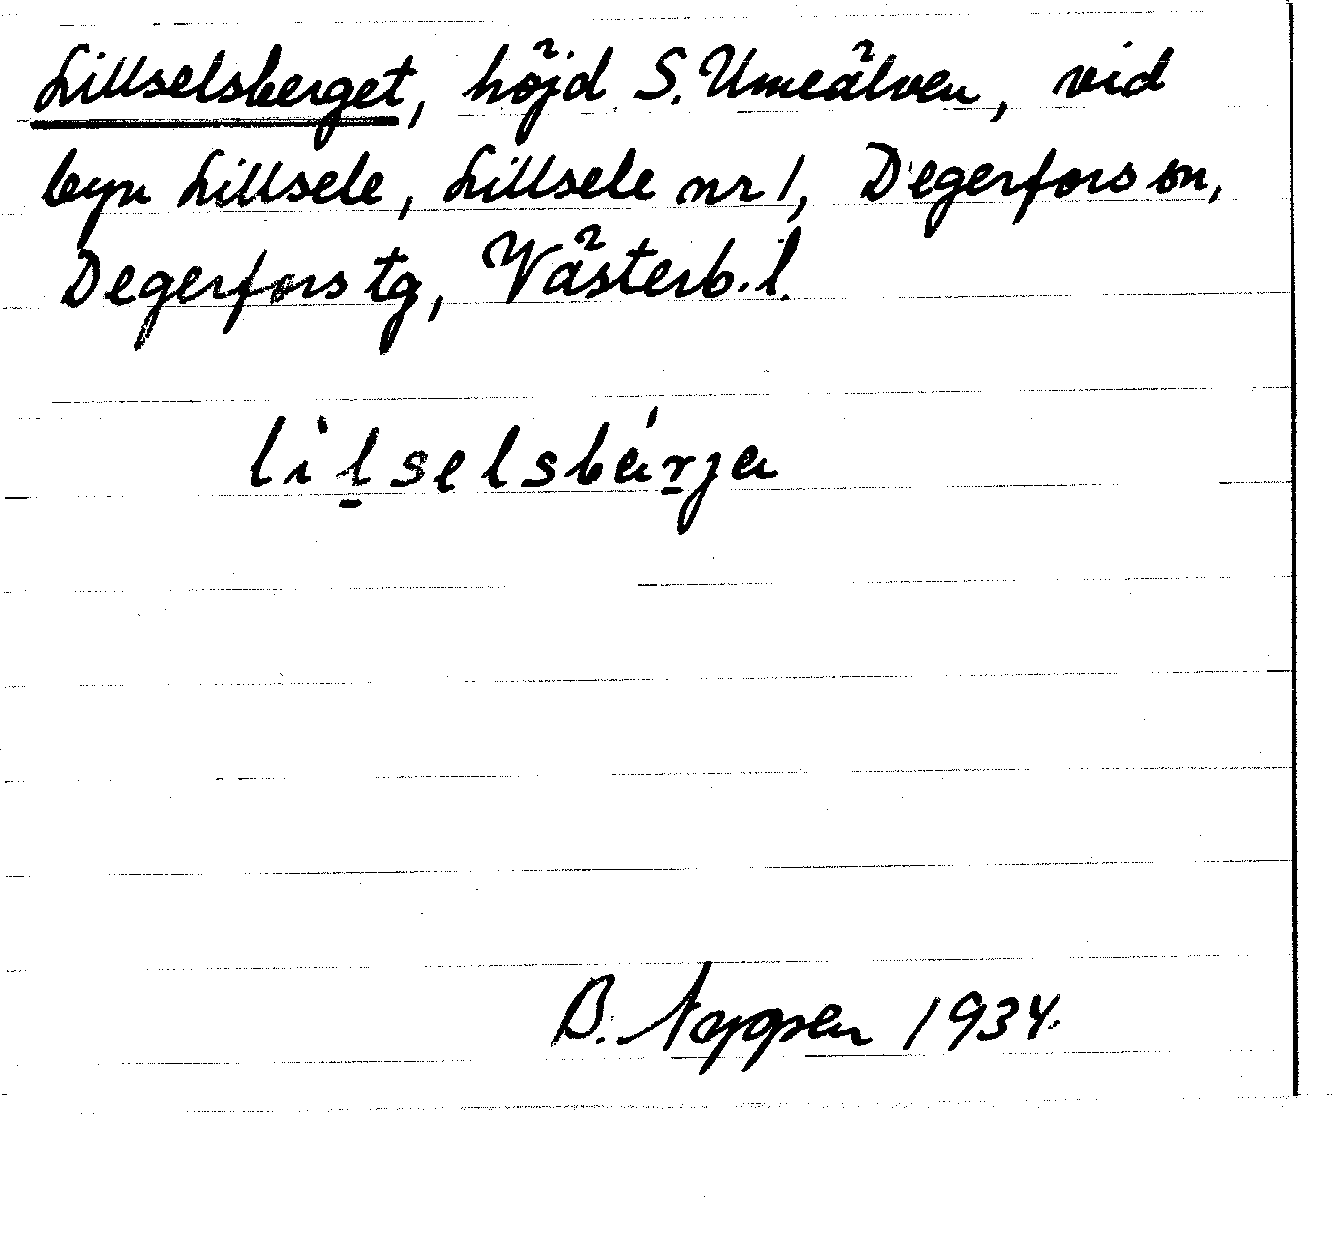 Lillselsberget, höjd S. Umeälven, vid
byn Lillsele, Lillsele nr 1, Degerfors sn,
Degerfors tg, Västerb. l.
lìl̠selsbár̠ja
B. 1934.